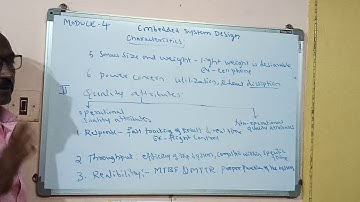 MODULE-4
Embedded System Design
Characteristics
5 Small size and weight - light weight is desirable
Ex - Cell phone
6 Power concern utilization, & heat dissipation
II Quality attributes
operational
Quality attributes
Non-operational
Quality attributes
1 Response - fast tracking of & real time
Ex - Flight Control
2 Throughput - efficiency of the system, complete within specific time
3. Reliability:- MTBF MTTR proper function of the system